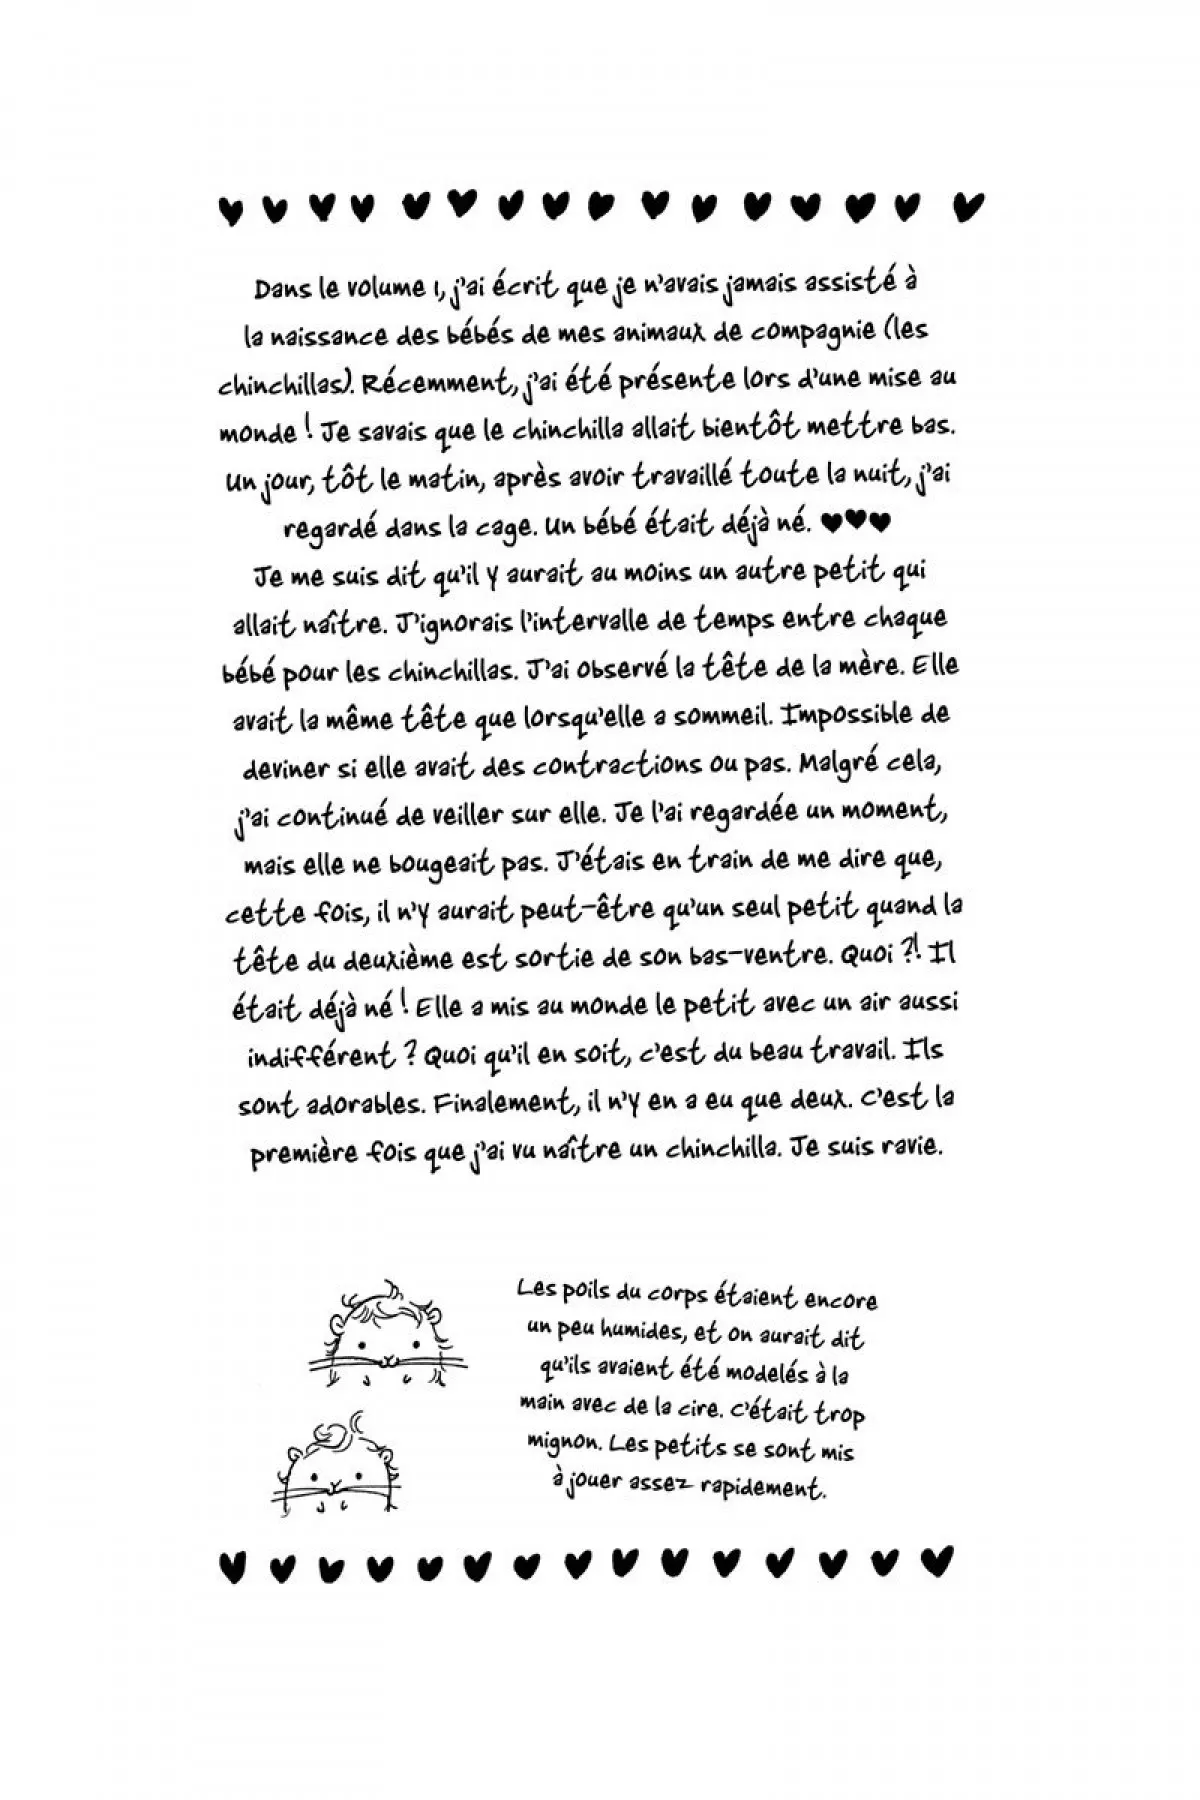 Dans le volume 1, j'ai écrit que je n'avais jamais assisté à
la naissance des bébés de mes animaux de compagnie (les
chinchillas). Récemment, j'ai été présente lors d'une mise au
monde ! Je savais que le chinchilla allait bientôt mettre bas.
Un jour, tôt le matin, après avoir travaillé toute la nuit, j'ai
regardé dans la cage. Un bébé était déjà né. ♥♥♥
Je me suis dit qu'il y aurait au moins un autre petit qui
allait naître. J'ignorais l'intervalle de temps entre chaque
bébé pour les chinchillas. J'ai observé la tête de la mère. Elle
avait la même tête que lorsqu'elle a sommeil. Impossible de
deviner si elle avait des contractions ou pas. Malgré cela,
j'ai continué de veiller sur elle. Je l'ai regardée un moment,
mais elle ne bougeait pas. J'étais en train de me dire que,
cette fois, il n'y aurait peut-être qu'un seul petit quand la
tête du deuxième est sortie de son bas-ventre. Quoi ?! Il
était déjà né ! Elle a mis au monde le petit avec un air aussi
indifférent ? Quoi qu'il en soit, c'est du beau travail. Ils
sont adorables. Finalement, il n'y en a eu que deux. C'est la
première fois que j'ai vu naître un chinchilla. Je suis ravie.
Les poils du corps étaient encore
un peu humides, et on aurait dit
qu'ils avaient été modelés à la
main avec de la cire. C'était trop
mignon. Les petits se sont mis
à jouer assez rapidement.